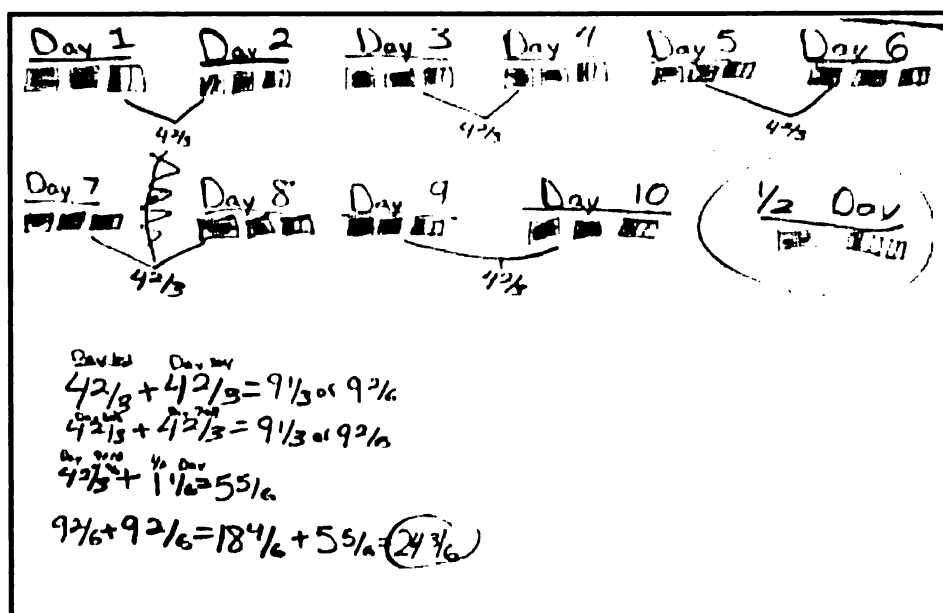 Day 1 Day 2 Day 3 Day 4 Day 5 Day 6
4 2/3 4 2/3 4 2/3
Day 7 Day 8 Day 9 Day 10 1/2 Day
4 2/3 4 2/3
4 2/3 + 4 2/3 = 9 1/3 or 9 2/6
4 2/3 + 4 2/3 = 9 1/3 or 9 2/6
1/2 Day
4 2/3 + 1 1/6 = 5 5/6
9 2/6 + 9 2/6 = 18 4/6 + 5 5/6 = 24 3/6